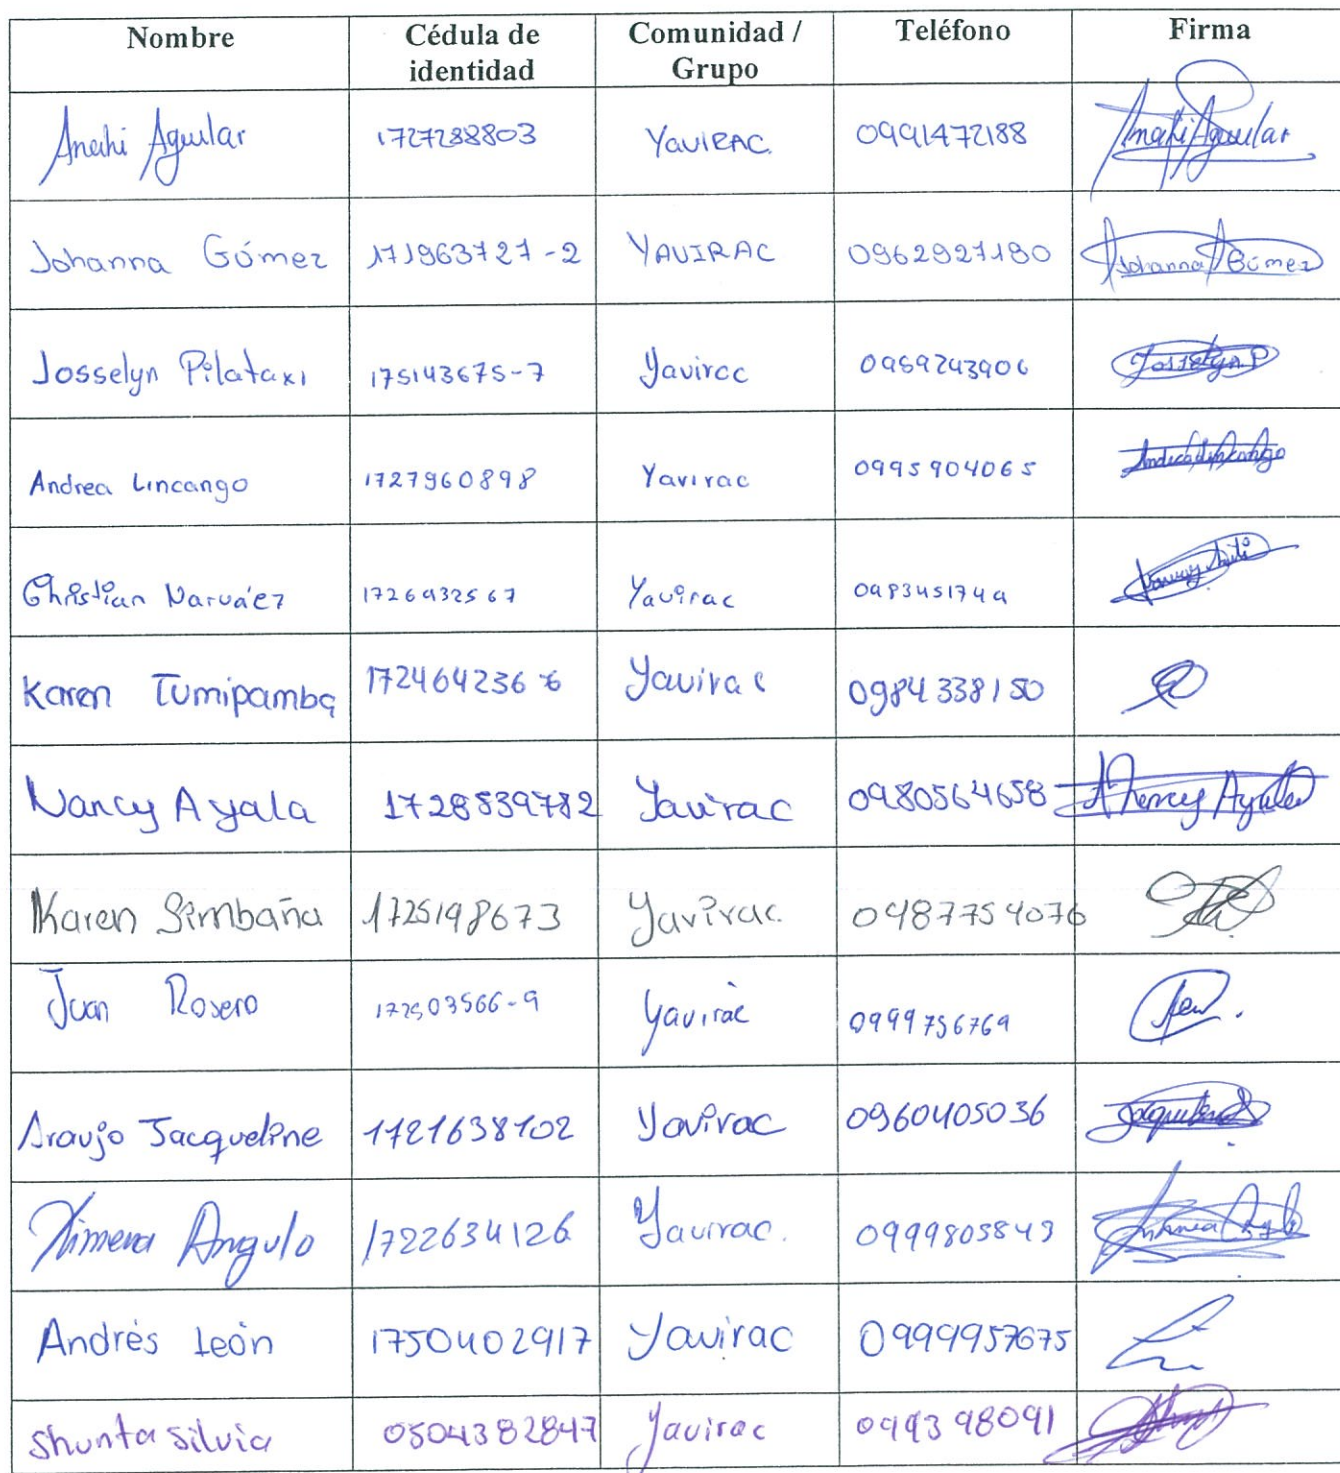 Nombre Cédula de identidad Comunidad / Grupo Teléfono Firma
Anahi Aguilar 1727288803 YavIRAC. 0991472188 Anahi Aguilar
Johanna Gómez 171963727-2 YAVIRAC 0962927190 Johanna Gómez
Josselyn Pilataxi 175143675-7 Yavirac 0959243906 Josselyn P
Andrea Lincango 1727960898 Yavirac 0995904065
Christian Narváez 1726932567 Yavirac 0983451749
Karen Tumipamba 172464236 6 Yavirac 0984338150
Nancy Ayala 1728539782 Yavirac 0980564658 Nancy Ayala
Karen Simbaña 1725198673 Yavirac. 0987754076
Juan Rosero 172503566-9 Yavirac 0999756769
Araujo Jacqueline 1721638102 Yavirac 0960405036
Ximena Angulo 1722634126 Yavirac. 0999805849
Andrés León 1750402917 Yavirac 0999957675
Shunta Silvia 0504382847 Yavirac 099398091